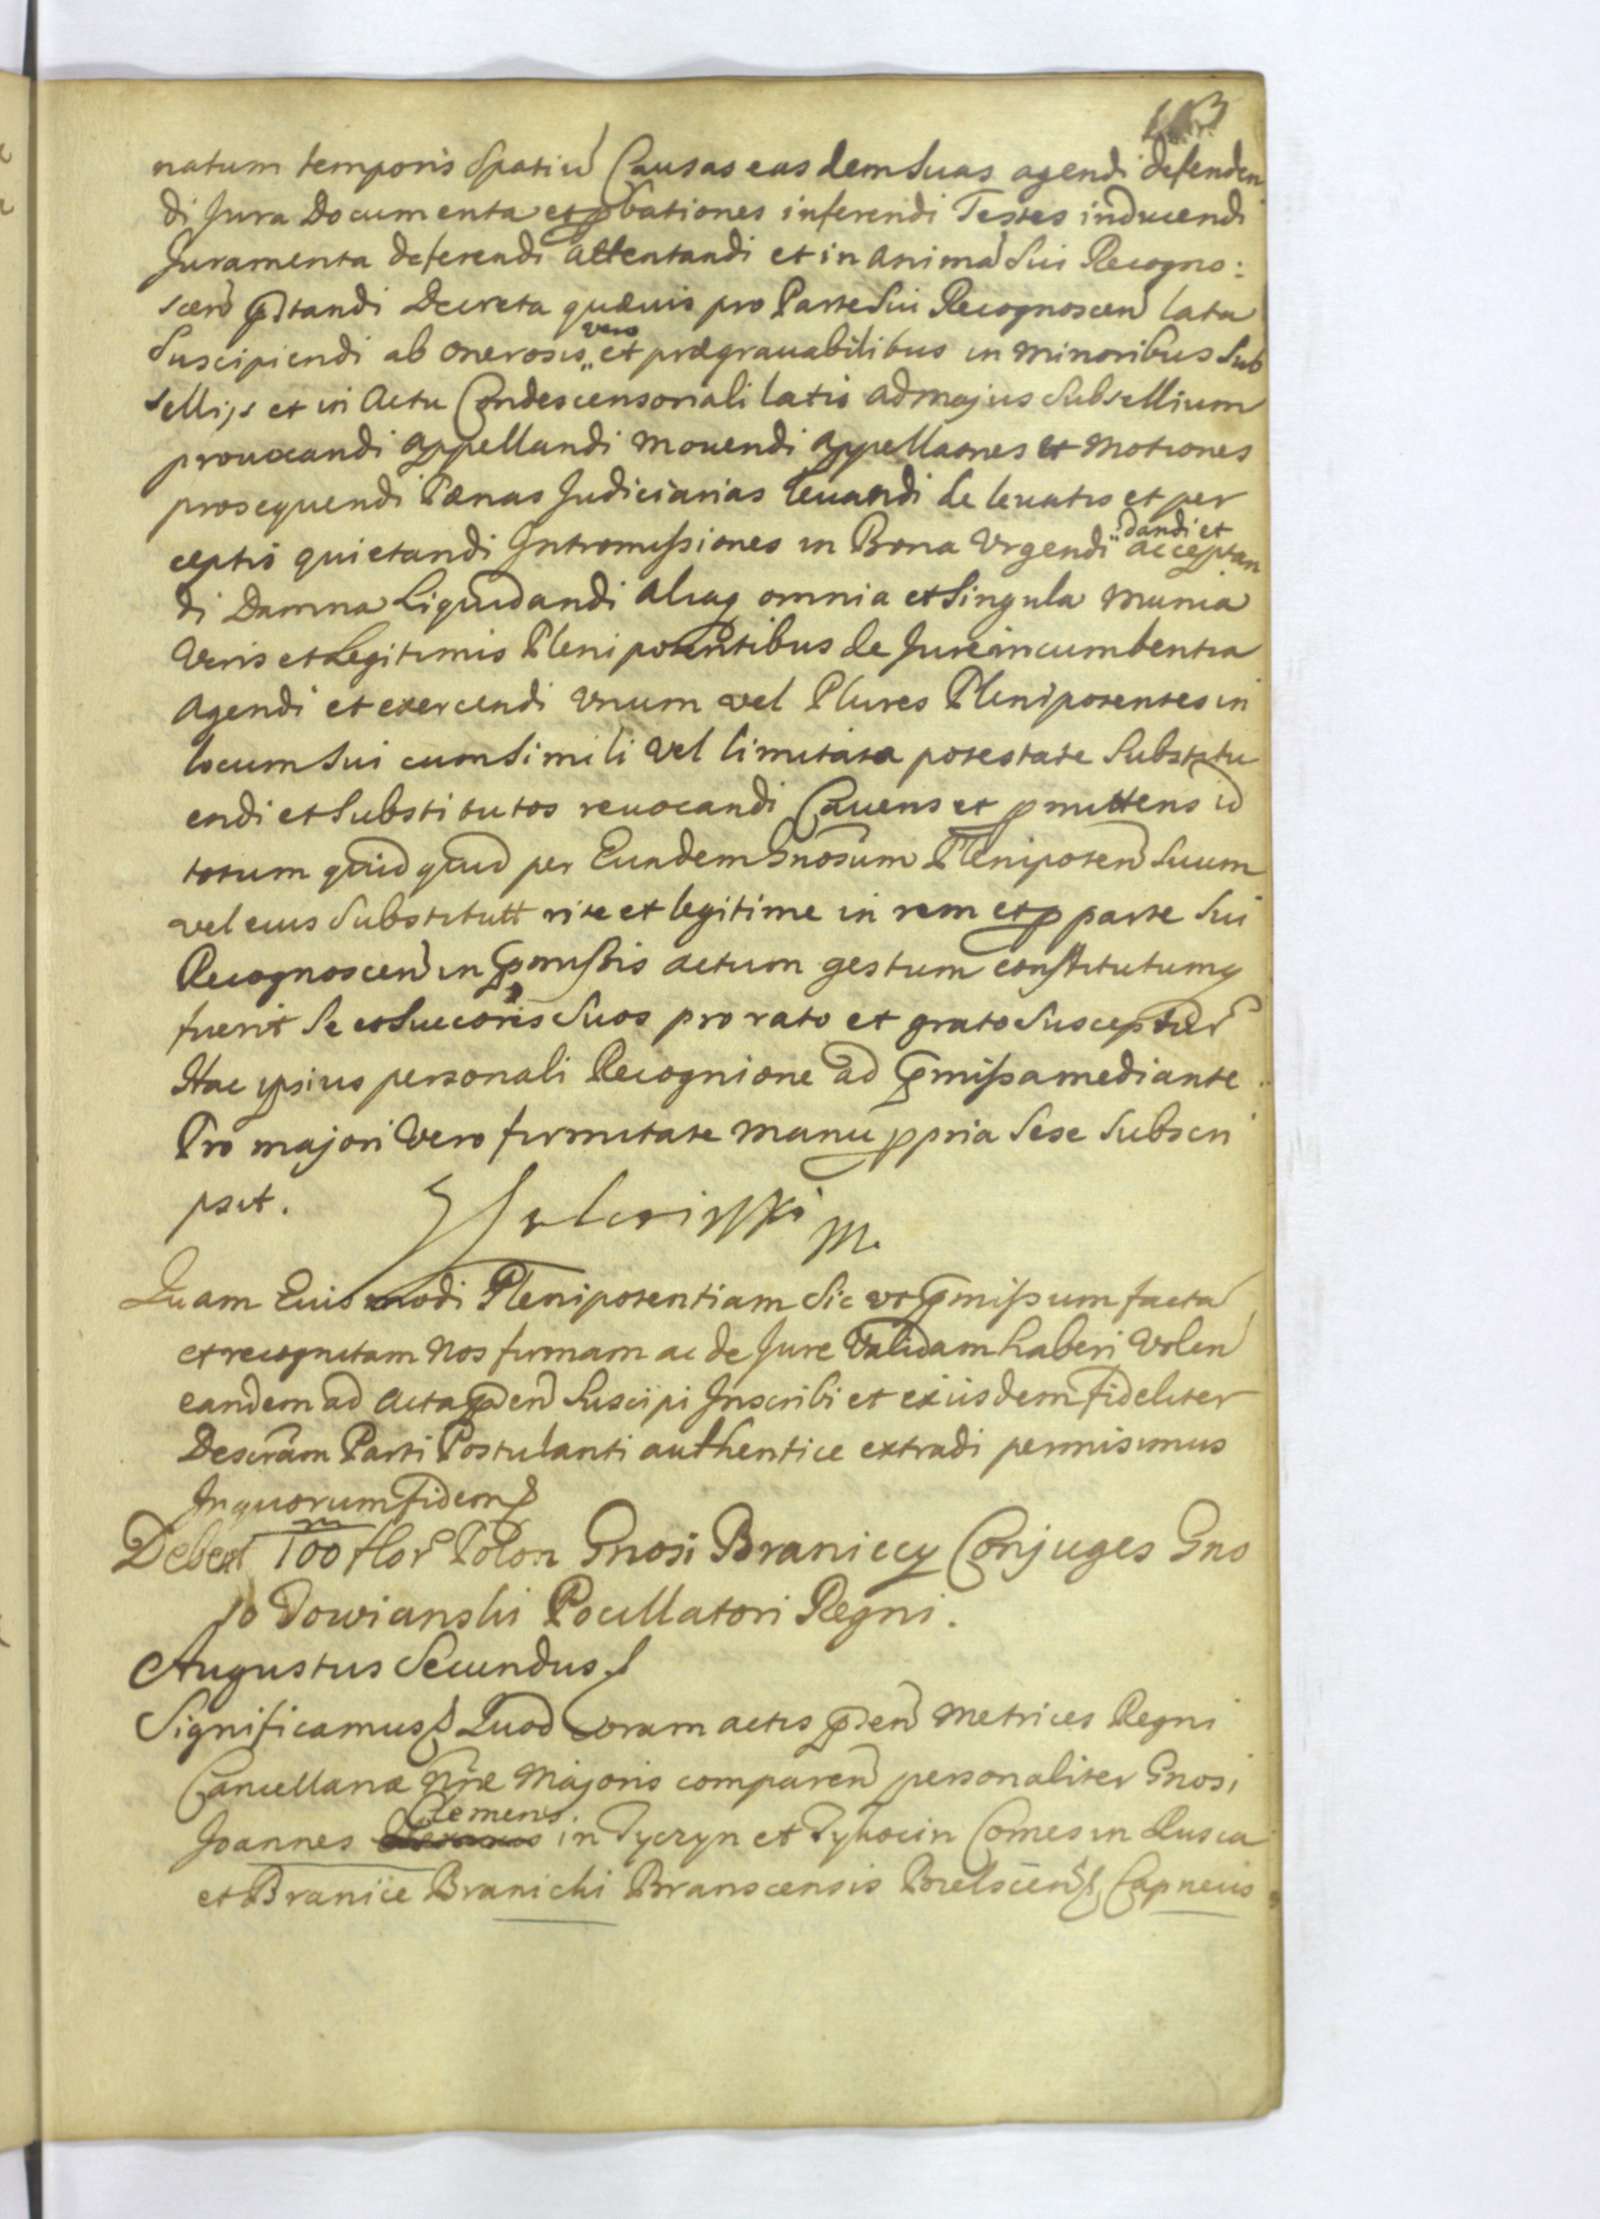 113
natum temporis Spatiũ Causas easdem Suas agendi defenden
di Jura Documenta et pbationes inferendi Testes inducendi
Juramenta deferendi attentandi et in animã Sui Recogno:
scen pstandi Decreta quævis pro Parte Sui Recognoscen lata
Suscipiendi ab onerosis vero et prægrauabilibus in minoribus Sub
sellijs et in Actu Condescensoriali latis ad majus Subsellium
prouocandi appellandi mouendi appellaones et motiones
prosequendi Pænas Judiciarias leuandi de leuatis et per
ceptis quietandi Intromissiones in Bona Urgendi dandi et acceptan
di Damna Liquidandi aliaq omnia et Singula munia
Veris et Legitimis Plenipotentibus de Jure incumbentia
Agendi et exercendi Unum vel Plures Plenipotentes in
locum Sui cum Simili vel limitata potestate Substitu
endi et Substitutos reuocandi Cauens et pmittens id
totum quidquid per Eundem Gnosum Plenipoten Suum
vel eius Substitutt rite et legitime in rem et p parte Sui
Recognoscen in pmissis actum gestum constitutumq
fuerit Se et Succoris Suos pro rato et grato Suscepturr
Hac ipsius personali Recognione ad pmissa mediante.
Pro majori Vero firmitate manu ppria Sese Subscri
psit.
m.
Quam Eiusmodi Plenipotentiam Sic ut pmissum factã
et recognitam Nos firmam ac de Jure Validam haberi Volen
eandem ad Acta pden Suscipi Inscribi et exiisdem fideliter
Descram Parti Postulanti authentice extradi permisimus
In quorum fidem
Debent 100 flor Polon Gnosi Braniccy Conjuges Gno
so Dowianski Pocillatori Regni.
Augustus Secundus
Significamus Quod Coram actis pden Metrices Regni
Cancellariæ Nræ Majoris comparen personaliter Gnosi
Joannes Clemens in Tyczyn et Tykocin Comes in Rusca
et Branice Branicki Branscensis Bielscen Capneus